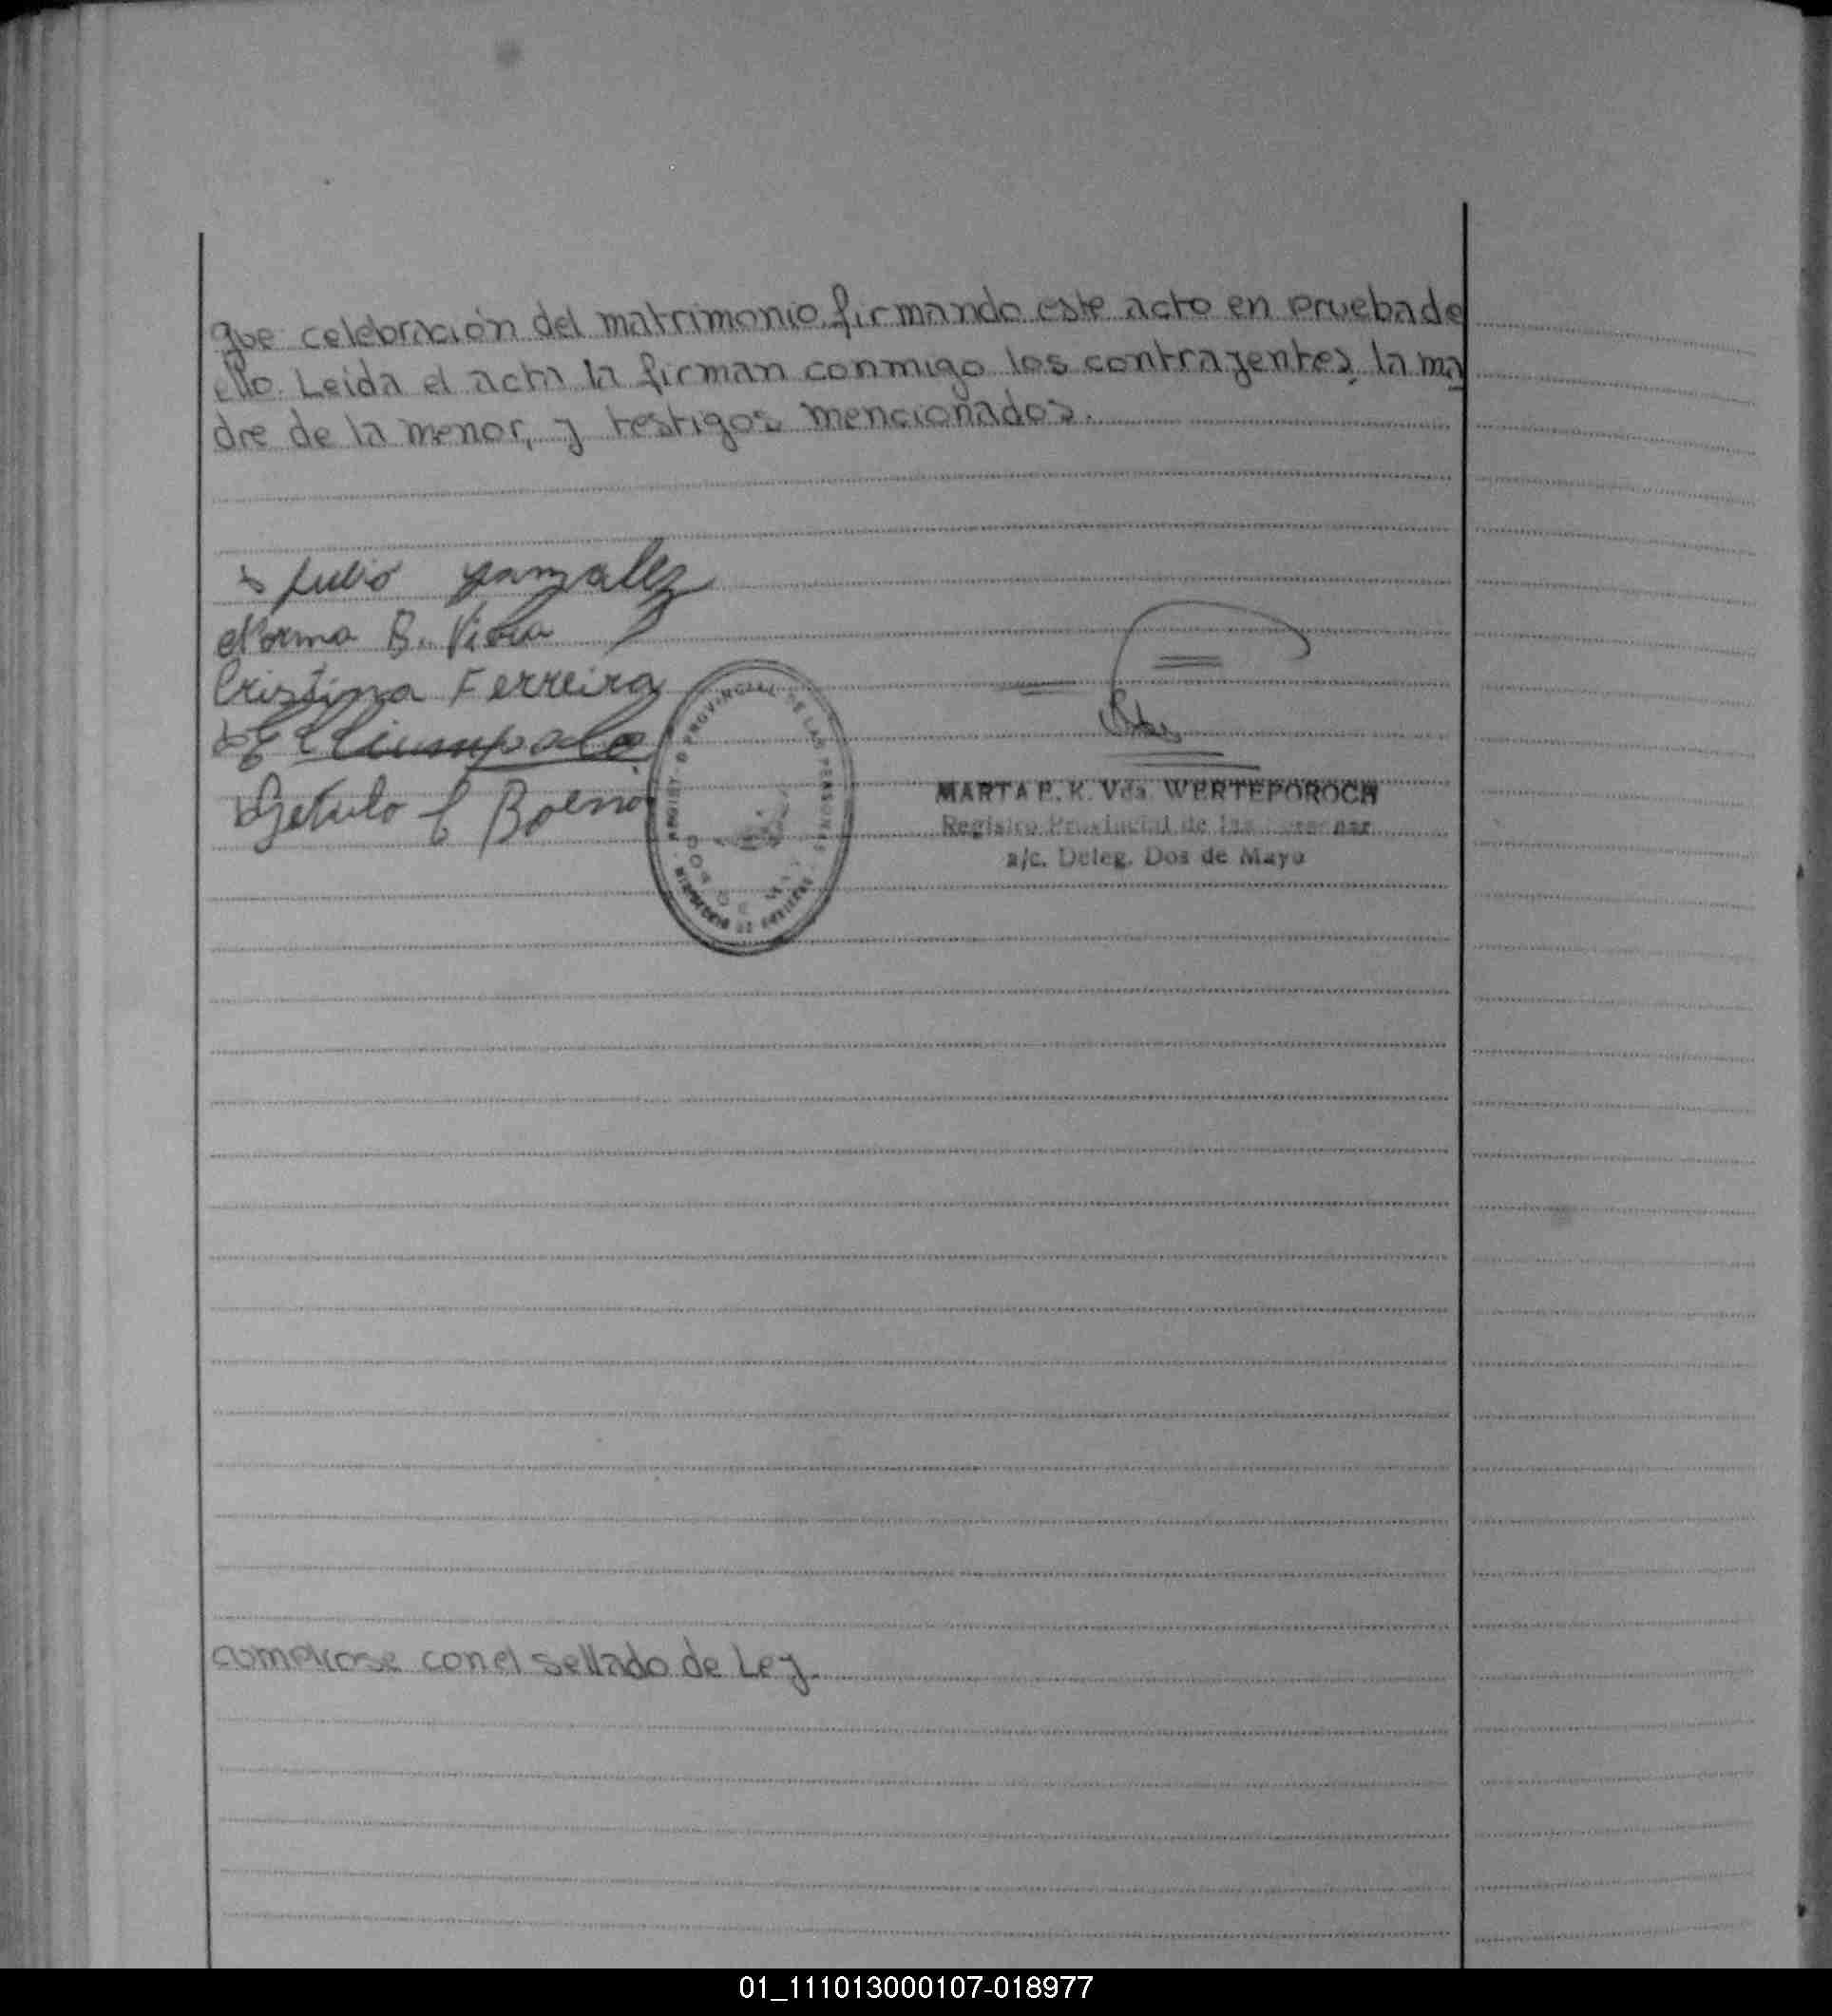 que celebración del matrimonio, firmando este acto en pruebade
ello. Leida el acta la firman conmigo los contrayentes, la ma
dre de la menor, y testigos mencionados.
Julio Gonzalez
Norma B.
Cristina Ferreira
Getulo
REGIST O PROVINCIAL DE LAS PERSONAS
MARTA E. K. Vda. WERTEPOROCH
Registro Provincial de las
a/c. Deleg. Dos de Mayo
cumplrose con el sellado de Ley.
01_111013000107-018977